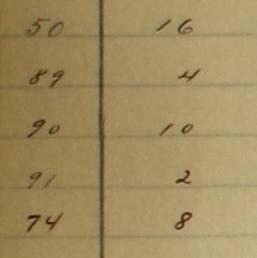 50 16
89 4
90 10
91 2
74 8